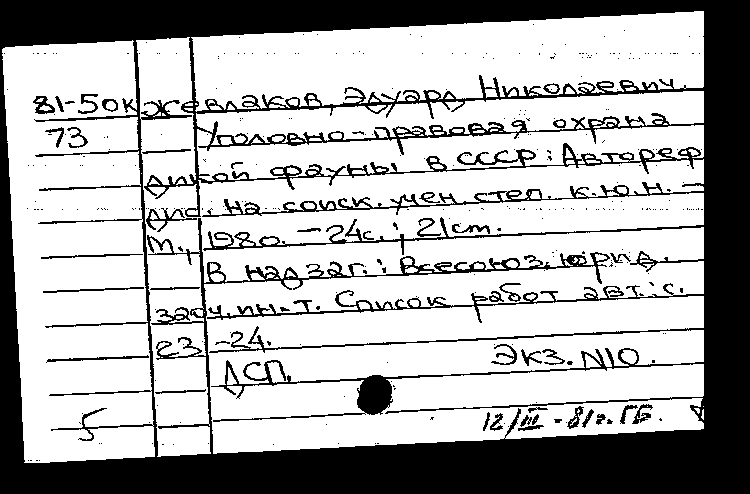 81-50к Жевлаков, Эдуард Николаевич.
73 Уголовно-правовая охрана
дикой фауны в СССР: Автореф
дис. на соиск. учен. степ. к.ю.н. —
М., 1980. — 24с.; 21cm.
В надзаг.: Всесоюз. юрид.
заоч. ин-т. Список работ авт.: с.
23 -24.
ДСП. Экз. N10.
5 12/III - 81г. ГБ.